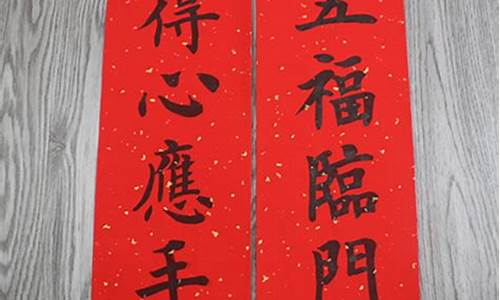 五福臨門
得心應手